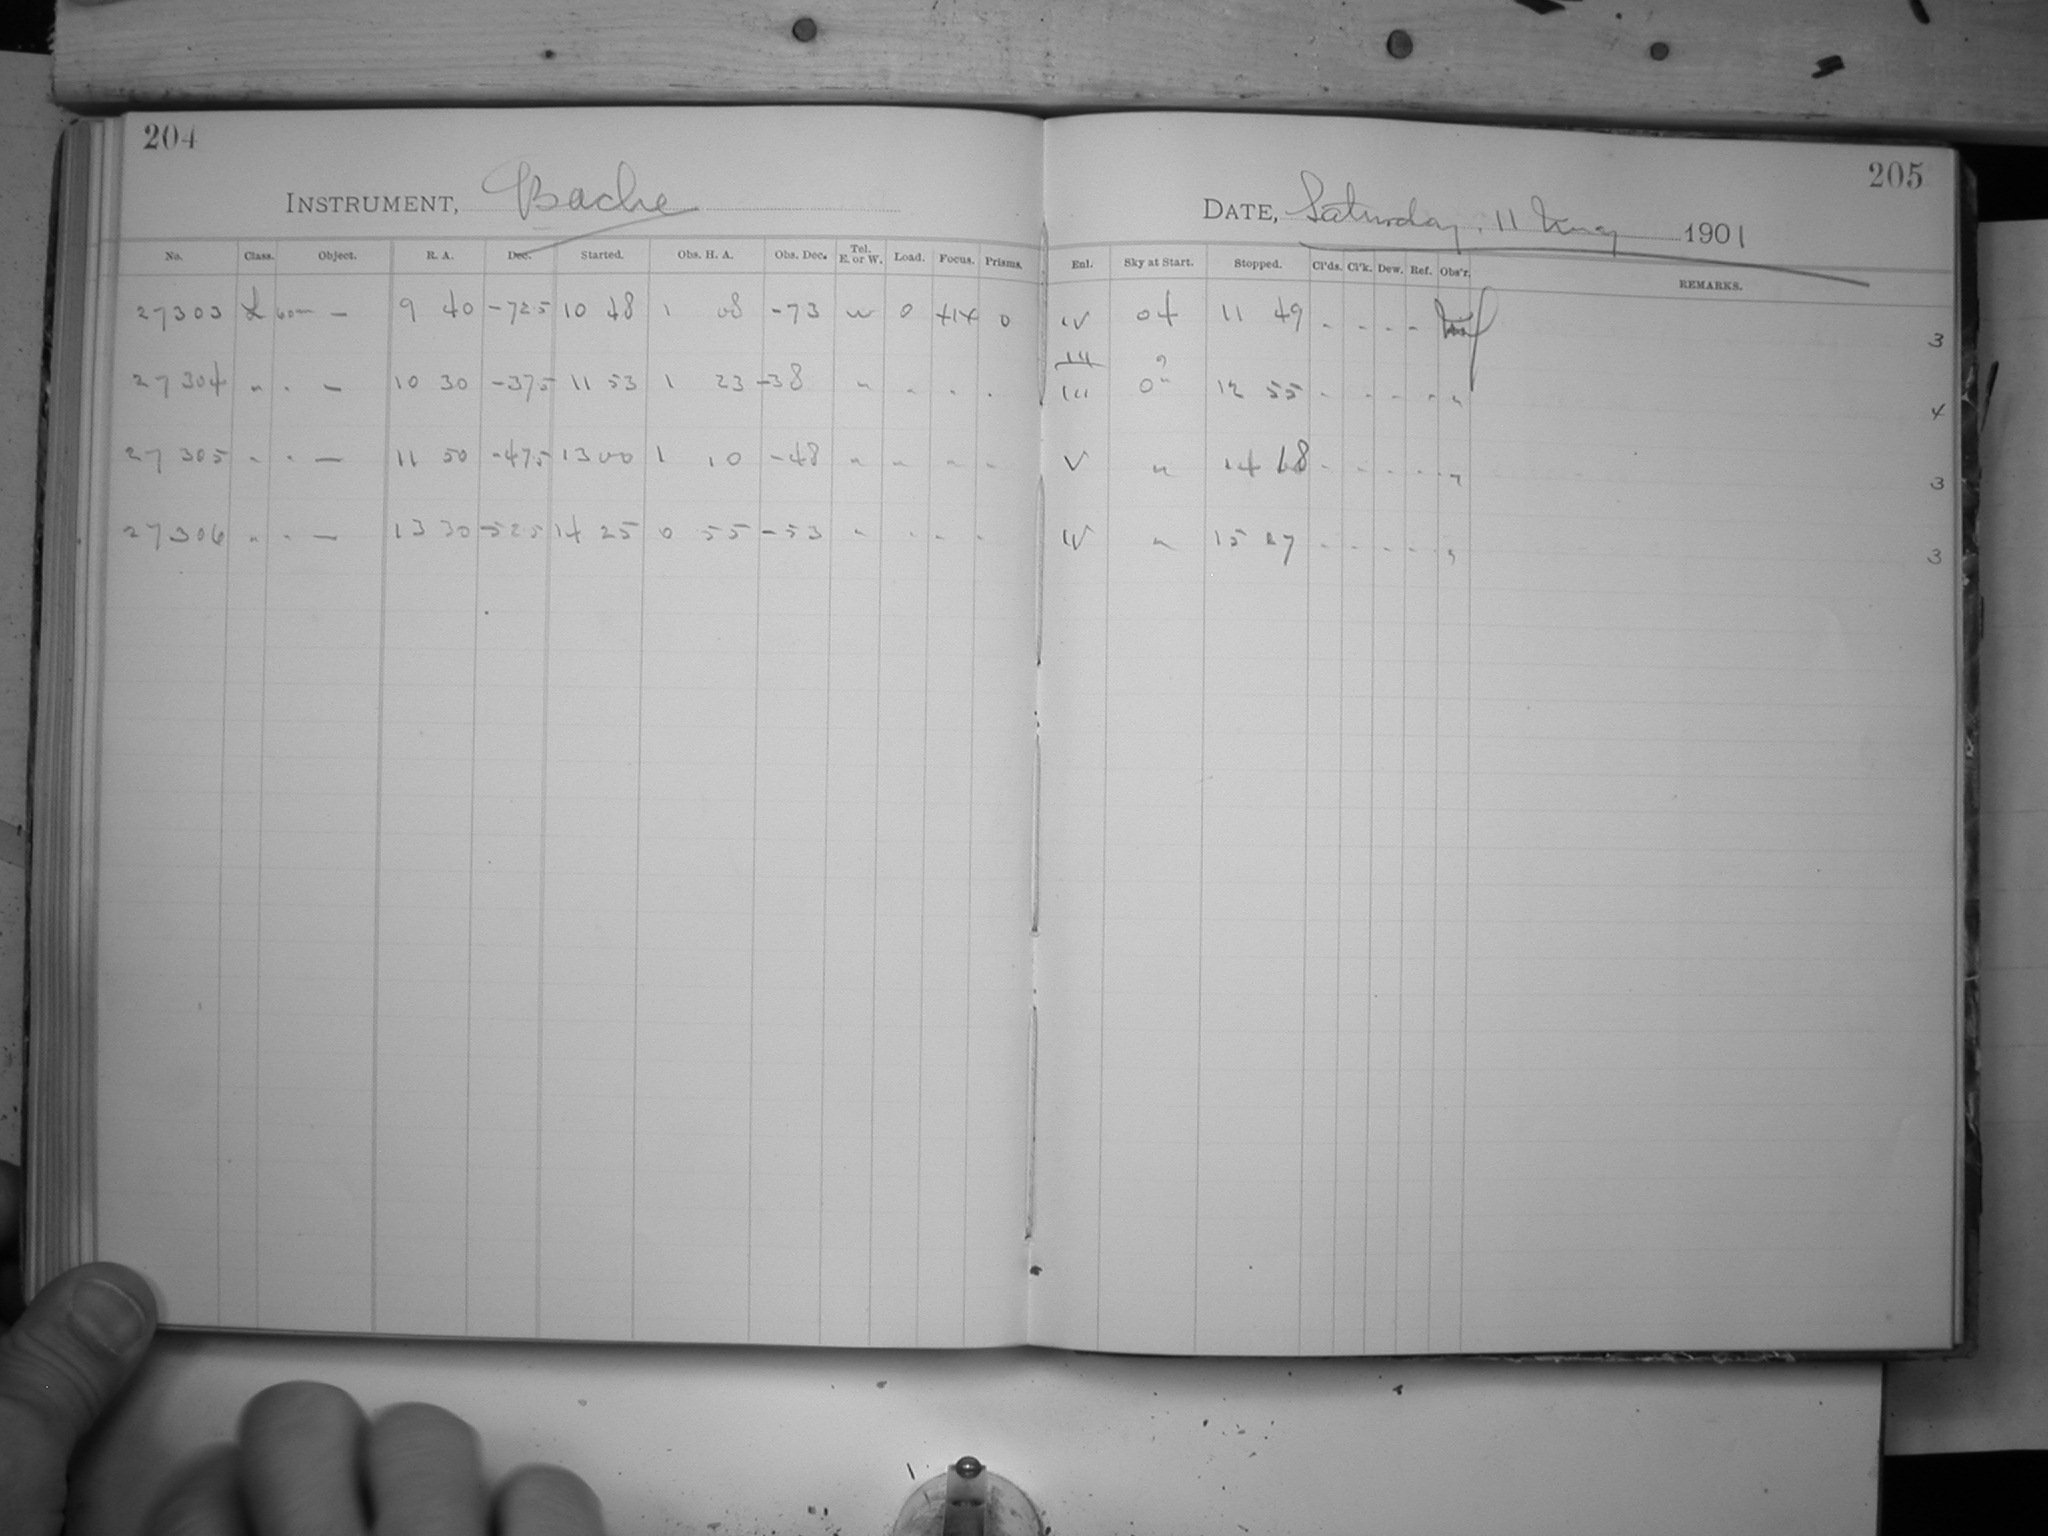 204
INSTRUMENT, Bache
No. Class. Object. R. A. Dec. Started. Obs. H. A. Obs. Dec. Tel. E. or W. Load. Focus. Prisms.
27303 L 60m — 9 40 -72.5 10 48 1 08 -73 W 0 +14 0
27304 " " — 10 30 -37.5 11 53 1 23 -38 " " " "
27305 " " — 11 50 -47.5 13 00 1 10 -48 " " " "
27306 " " — 13 30 -52.5 14 25 0 55 -53 " " " "
205
DATE, Saturday, 11 May 1901
Enl. Sky at Start. Stopped. Cl'ds. Cl'k. Dew. Ref. Obs'r. REMARKS.
IV 04 11 49 - - - - 3
III 0 12 55 - - - - " 4
V " 14 - - - - " 3
IV " 15 27 - - - - " 3